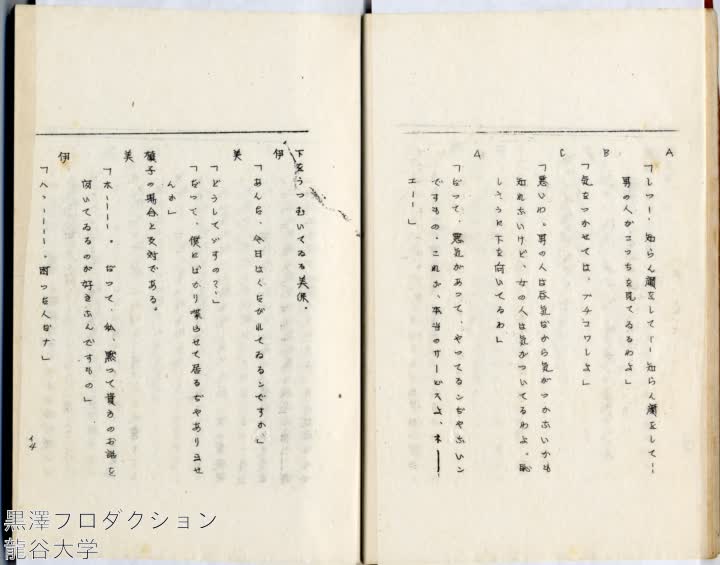 A
「しつ！、知らん顔をして！！知らん顔をして！！
男の人がこつちを見てゐるわよ」
B
「気をつかせては、ブチコワしよ」
C
「悪いわ。男の人は呑気だから気がつかないかも
知れないけど、女の人は気がついてるわよ。恥
しそうに下を向いてるわ」
A
「だつて、悪気があつて、やつてるンぢやないン
ですもの。これが、本当のサービスよ、ネーー
エーー」
下をうつむいてゐる美保。
伊
「あんた、今日はくたびれてゐるンですか」
美
「どうしてゞすの？」
「だつて、僕にばかり喋らせて居るぢやありませ
んか」
子の場合と反対である。
美
「ホヽヽヽヽ。だつて、私、黙つて貴方のお話を
伺いてゐるのが好きなんですもの」
伊
「ヘヽヽヽヽ。困つた人だナ」
14
黒澤プロダクション
龍谷大学